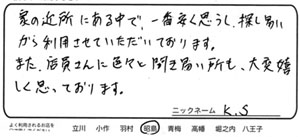 家の近所にある中で、一番安く思うし、探し易い
から利用させていただいております。
また、店員さんに色々と聞き易い所も、大変嬉
しく思っております。
ニックネーム K.S
よく利用されるお店を
立川 小作 羽村 昭島 青梅 高幡 堀之内 八王子